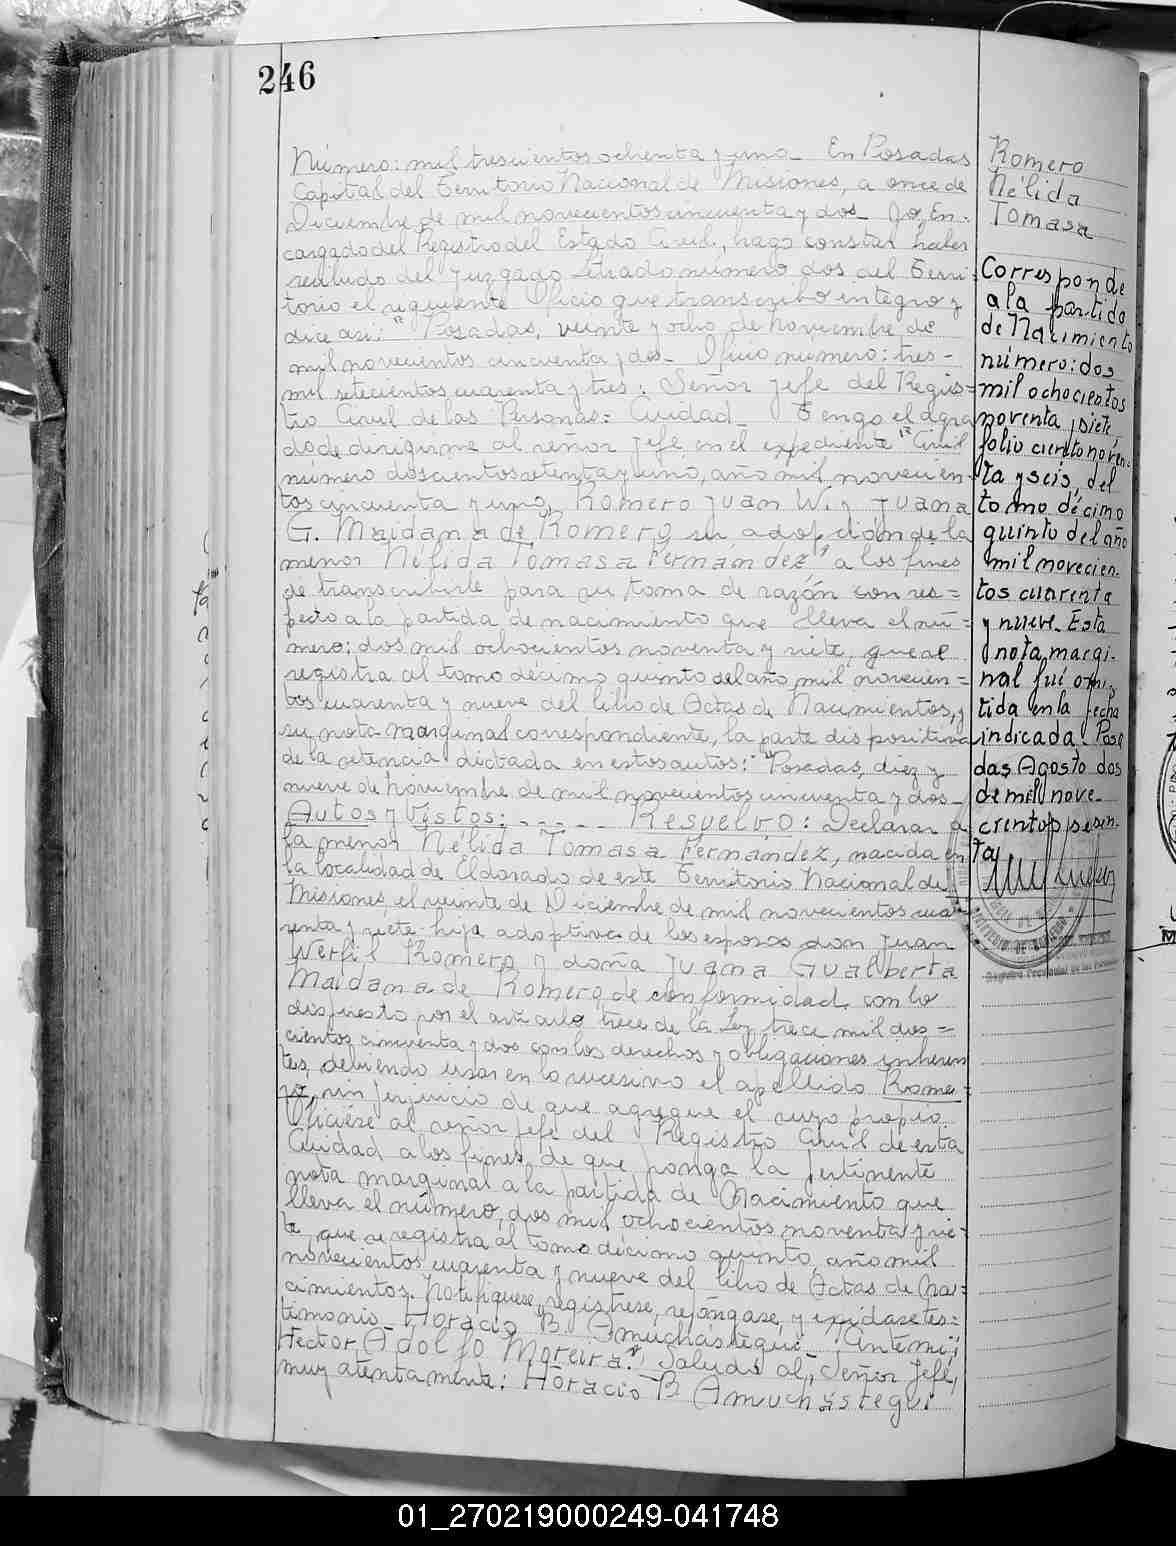 246
Número: mil trescientos ochenta y uno_ En Posadas
Capital del Territorio Nacional de Misiones, a once de
Diciembre de mil novecientos cincuenta y dos_ Yo, En-
cargado del Registro del Estado Civil, hago constar haber
recibido del Juzgado Letrado número dos del Terri-
torio el siguiente Oficio que transcribo integro y
dice asi: " Posadas, veinte y ocho de noviembre de
mil novecientos cincuenta y dos_ Oficio número: tres-
mil setecientos cuarenta y tres: Señor Jefe del Regis=
tro Civil de las Personas= Ciudad_ Tengo el agra
do de dirigirme al señor Jefe en el expediente " Civil
número doscientos setenta y uno, año mil novecien-
tos cincuenta y uno, Romero Juan W. y Juana
G. Maidana de Romero su adopción de la
menor Nélida Tomasa Fernandez" a los fines
de transcribirle para su toma de razón con res=
pecto a la partida de nacimiento que lleva el nú=
mero: dos mil ochocientos noventa y siete, que se
registra al tomo décimo quinto del año mil novecien=
tos cuarenta y nueve del libro de Actas de Nacimientos, y
su nota marginal correspondiente, la parte dispositiva
de la setencia dictada en estos autos: "Posadas, diez y
nueve de Noviembre de mil novecientos cincuenta y dos_
Autos y Vistos: . - - - - Resuelvo: Declarar a
la menor Nélida Tomasa Fernández, nacida en
la localidad de Eldorado de este Territorio Nacional de
Misiones, el veinte de Diciembre de mil novecientos cua-
renta y siete hija adoptiva de los esposos don Juan
Werfil Romero y doña Juana Gualberta
Maidana de Romero de conformidad con lo
dispuesto por el articulo trece de la Ley trece mil dos=
cientos cincuenta y dos con los derechos y obligaciones inheren
tes, debiendo usar en lo sucesivo el apellido Rome=
ro, sin perjuicio de que agregue el suyo propio
Oficiése al señor Jefe del Registro Civil de esta
Ciudad a los fines de que ponga la pertinente
nota marginal a la partida de Nacimiento que
lleva el número, dos mil ochocientos noventa y sie-
te, que se registra al tomo décimo quinto, año mil
novecientos cuarenta y nueve del libro de Actas de Na=
cimientos. Notifiquese, registrese, repóngase, y expídase tes=
timonio_ Horacio B. Amuchástegui_ Antemi;
Héctor Adolfo Moreira." Saluda al Señor Jefe,
muy atentamente: Horacio B Amuchastegui
Romero
Nélida
Tomasa
Corresponde
a la partida
de Nacimiento
número: dos
mil ochocientos
noventa y siete
folio ciento noven-
ta y seis, del
tomo décimo
quinto del año
mil novecien-
tos cuarenta
y nueve. Esta
nota margi-
nal fué omi-
tida en la fecha
indicada. Posa
das Agosto dos
de mil nove-
cientos sesen-
ta
01_270219000249-041748